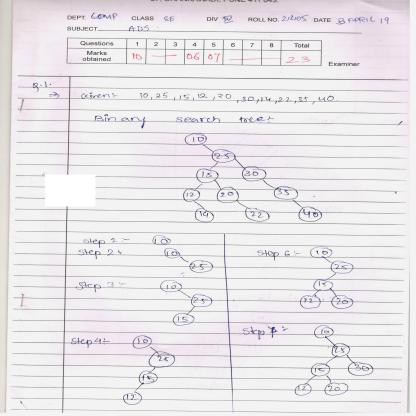 DEPT. COMP CLASS SE DIV ROLL NO. 21205 DATE 8 APRIL 19
SUBJECT ADS
Questions 1 2 3 4 5 6 7 8 Total
Marks obtained 10 06 07 23
Examiner
Q.1.
Given:- 10, 25, 15, 12, 20, 30, 14, 22, 35, 40.
Binary search tree:-
10
25
15 30
12 20 35
14 22 40
Step 1:- 10
Step 2:- 10
25
Step 3:- 10
25
15
Step 4:- 10
25
15
12
Step 6:- 10
25
15
12 20
Step 7:- 10
25
15 30
12 20